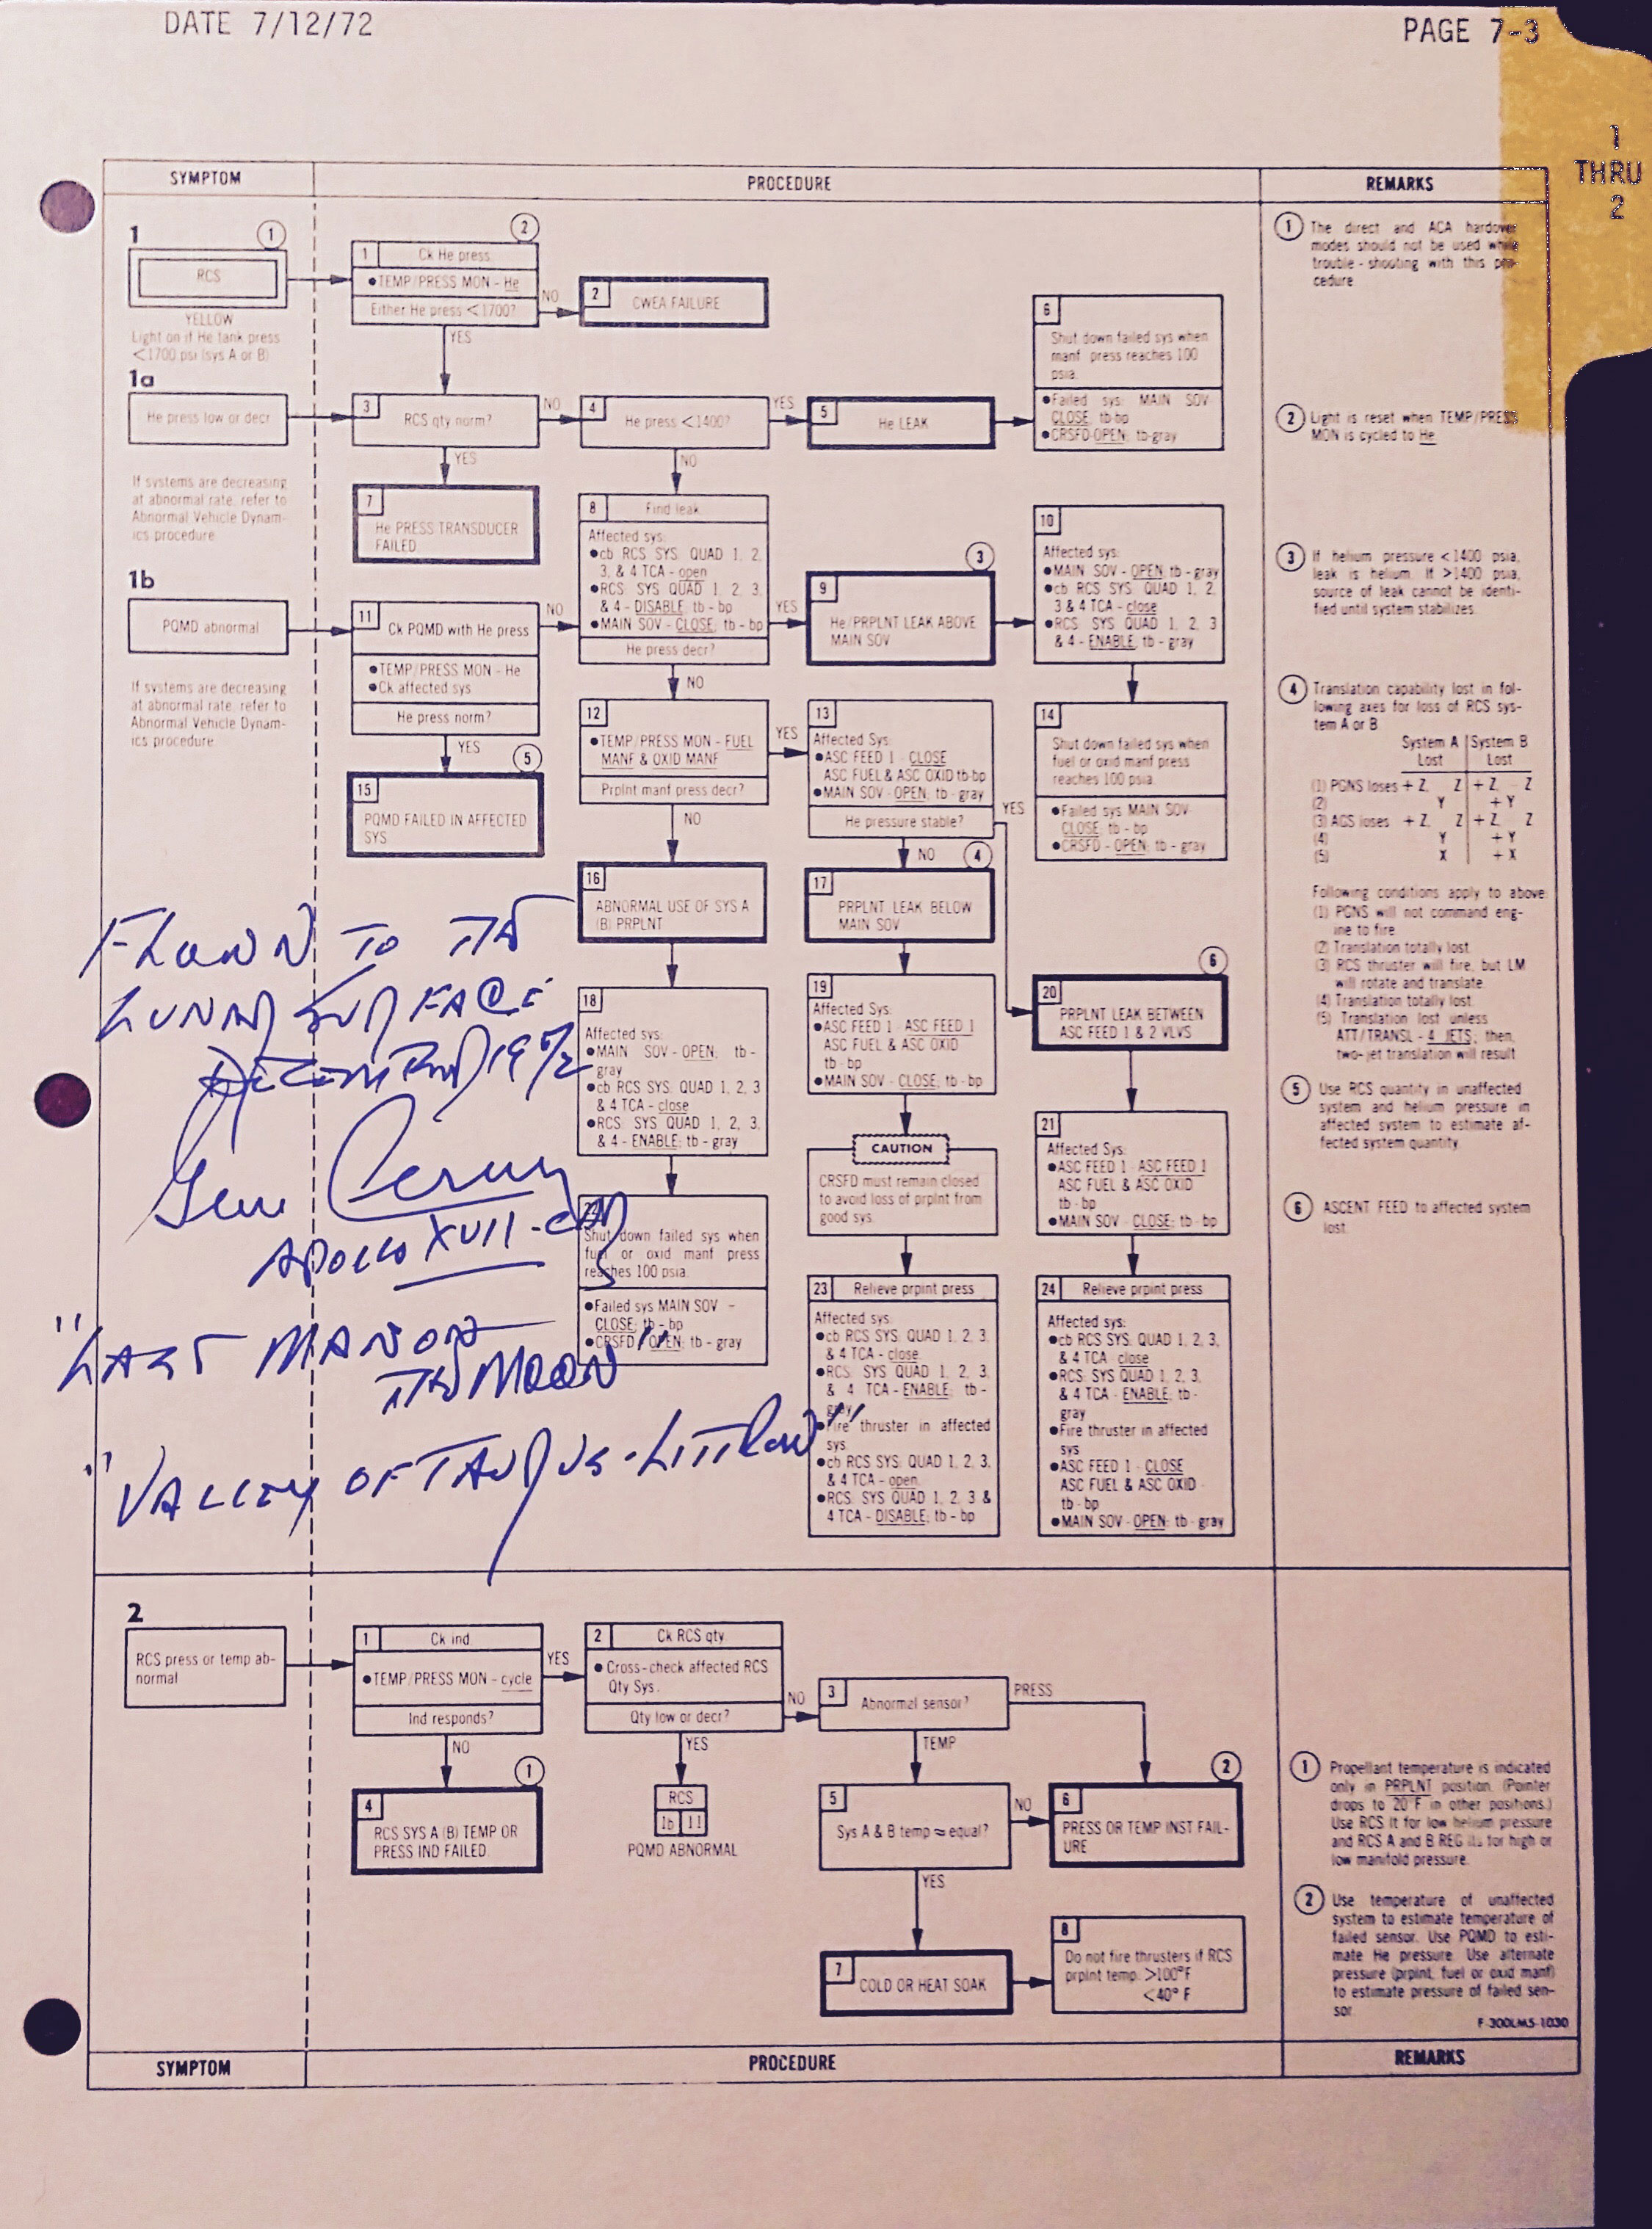 DATE 7/12/72
PAGE 7-3
1
THRU
2
SYMPTOM
PROCEDURE
REMARKS
1
1
RCS
YELLOW
Light on if He tank press
<1700 psi (sys A or B)
1a
He press low or decr
If systems are decreasing
at abnormal rate, refer to
Abnormal Vehicle Dynam-
ics procedure
1b
PQMD abnormal
If systems are decreasing
at abnormal rate, refer to
Abnormal Vehicle Dynam-
ics procedure
2
1 Ck He press
•TEMP/PRESS MON - He
Either He press <1700?
NO
YES
2
CWEA FAILURE
3
RCS qty norm?
NO
YES
4
He press <1400?
YES
NO
5
He LEAK
6
Shut down failed sys when
manf press reaches 100
psia.
•Failed sys: MAIN SOV-
CLOSE, tb-bp
•CRSFD-OPEN; tb-gray
7
He PRESS TRANSDUCER
FAILED
8 Find leak
Affected sys:
•cb RCS SYS: QUAD 1, 2,
3, & 4 TCA - open
•RCS: SYS QUAD 1, 2, 3,
& 4 - DISABLE tb - bp
•MAIN SOV - CLOSE; tb - bp
He press decr?
YES
NO
3
9
He/PRPLNT LEAK ABOVE
MAIN SOV
10
Affected sys:
•MAIN SOV - OPEN; tb - gray
•cb RCS SYS: QUAD 1, 2,
3 & 4 TCA - close
•RCS: SYS QUAD 1, 2, 3
& 4 - ENABLE; tb - gray
11
Ck PQMD with He press
•TEMP/PRESS MON - He
•Ck affected sys
He press norm?
NO
YES
12
•TEMP/PRESS MON - FUEL
MANF & OXID MANF
Prplnt manf press decr?
YES
NO
13
Affected Sys:
•ASC FEED 1 - CLOSE
ASC FUEL & ASC OXID tb-bp
•MAIN SOV - OPEN; tb - gray
He pressure stable?
YES
NO
14
Shut down failed sys when
fuel or oxid manf press
reaches 100 psia.
•Failed sys MAIN SOV-
CLOSE; tb - bp
•CRSFD - OPEN; tb - gray
5
15
PQMD FAILED IN AFFECTED
SYS
16
ABNORMAL USE OF SYS A
(B) PRPLNT
4
17
PRPLNT LEAK BELOW
MAIN SOV
18
Affected sys:
•MAIN SOV - OPEN; tb -
gray
•cb RCS SYS: QUAD 1, 2, 3
& 4 TCA - close
•RCS: SYS QUAD 1, 2, 3,
& 4 - ENABLE; tb - gray
19
Affected Sys:
•ASC FEED 1 - ASC FEED 1
ASC FUEL & ASC OXID
tb - bp
•MAIN SOV - CLOSE, tb - bp
6
20
PRPLNT LEAK BETWEEN
ASC FEED 1 & 2 VLVS
CAUTION
CRSFD must remain closed
to avoid loss of prplnt from
good sys.
21
Affected Sys:
•ASC FEED 1 - ASC FEED 1
ASC FUEL & ASC OXID
tb - bp
•MAIN SOV - CLOSE; tb - bp
22
Shut down failed sys when
fuel or oxid manf press
reaches 100 psia.
•Failed sys MAIN SOV -
CLOSE; tb - bp
•CRSFD - OPEN; tb - gray
23 Relieve prplnt press
Affected sys:
•cb RCS SYS: QUAD 1, 2, 3,
& 4 TCA - close
•RCS: SYS QUAD 1, 2, 3,
& 4 TCA - ENABLE; tb -
gray
•Fire thruster in affected
sys.
•cb RCS SYS: QUAD 1, 2, 3,
& 4 TCA - open
•RCS: SYS QUAD 1, 2, 3 &
4 TCA - DISABLE; tb - bp
24 Relieve prplnt press
Affected sys:
•cb RCS SYS: QUAD 1, 2, 3,
& 4 TCA close
•RCS: SYS QUAD 1, 2, 3,
& 4 TCA - ENABLE; tb -
gray
•Fire thruster in affected
sys
•ASC FEED 1 - CLOSE
ASC FUEL & ASC OXID -
tb - bp
•MAIN SOV - OPEN; tb - gray
FLOWN TO THE
LUNAR SURFACE
DECEMBER 1972
Gene Cernan
APOLLO XVII-CDR
"LAST MAN ON
THE MOON"
"VALLEY OF TAURUS-LITTROW"
1 The direct and ACA hardover
modes should not be used while
trouble - shooting with this pro-
cedure.
2 Light is reset when TEMP/PRESS
MON is cycled to He
3 If helium pressure <1400 psia,
leak is helium. If >1400 psia,
source of leak cannot be identi-
fied until system stabilizes.
4 Translation capability lost in fol-
lowing axes for loss of RCS sys-
tem A or B
System A System B
Lost Lost
(1) PGNS loses + Z, Z + Z, Z
(2) Y + Y
(3) AGS loses + Z, Z + Z, Z
(4) Y + Y
(5) X + X
Following conditions apply to above:
(1) PGNS will not command eng-
ine to fire
(2) Translation totally lost.
(3) RCS thruster will fire, but LM
will rotate and translate.
(4) Translation totally lost.
(5) Translation lost unless
ATT/TRANSL - 4 JETS; then,
two-jet translation will result
5 Use RCS quantity in unaffected
system and helium pressure in
affected system to estimate af-
fected system quantity.
6 ASCENT FEED to affected system
lost.
2
RCS press or temp ab-
normal
1 Ck ind
•TEMP/PRESS MON - cycle
Ind responds?
YES
NO
2 Ck RCS qty
• Cross-check affected RCS
Qty Sys.
Qty low or decr?
NO
YES
3
Abnormal sensor?
PRESS
TEMP
1
4
RCS SYS A (B) TEMP OR
PRESS IND FAILED
RCS
1b 11
PQMD ABNORMAL
5
Sys A & B temp ≈ equal?
NO
YES
2
6
PRESS OR TEMP INST FAIL-
URE
7
COLD OR HEAT SOAK
8
Do not fire thrusters if RCS
prplnt temp. >100°F
<40° F
1 Propellant temperature is indicated
only in PRPLNT position. (Pointer
drops to 20°F in other positions.)
Use RCS lt for low helium pressure
and RCS A and B REG lts for high or
low manifold pressure.
2 Use temperature of unaffected
system to estimate temperature of
failed sensor. Use PQMD to esti-
mate He pressure. Use alternate
pressure (prplnt, fuel or oxid manf)
to estimate pressure of failed sen-
sor.
F-300LM5-1030
SYMPTOM
PROCEDURE
REMARKS